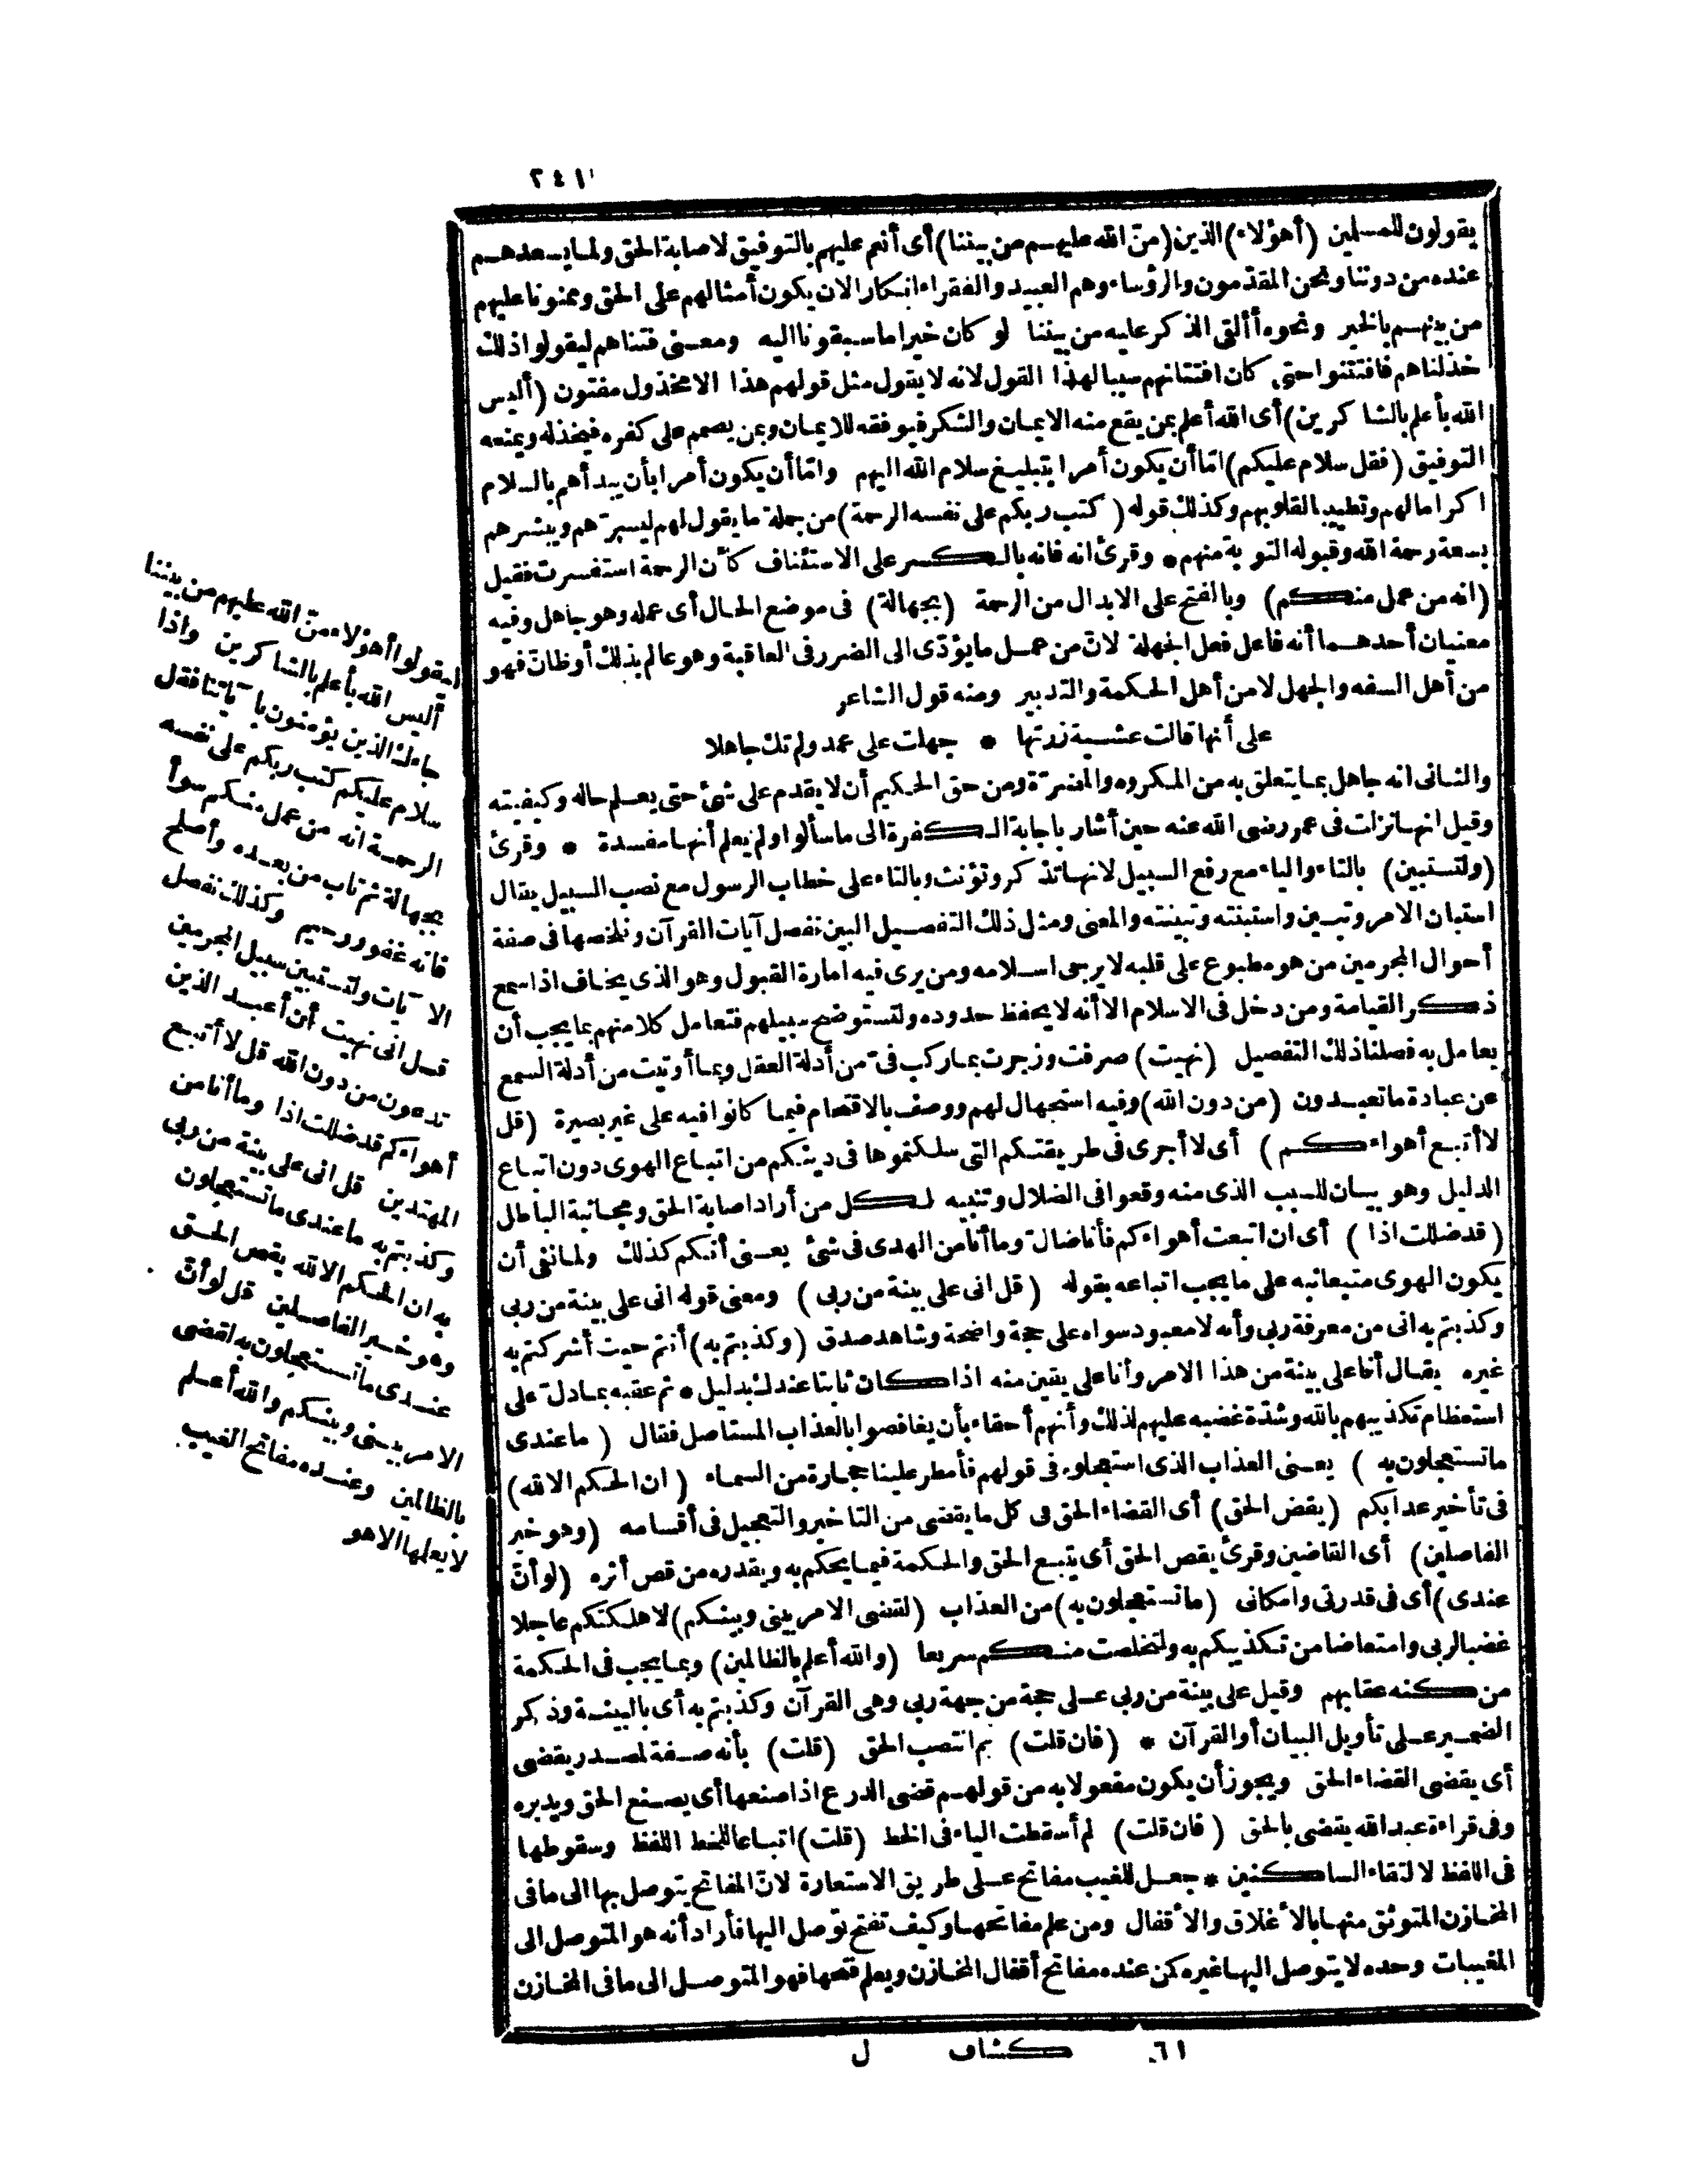 ٢٤١
يقولون للمسلمين (أهؤلاء) الذين (منّ الله عليهم من بيننا) أى أنعم عليهم بالتوفيق لاصابة الحق ولما يسعدهم
عنده من دوننا ونحن المقدّمون والرؤساء وهم العبيد والفقراء انكارا لان يكون أمثالهم على الحق وممنونا عليهم
من بينهم بالخير ونحوه أألقى الذكر عليه من بيننا لو كان خيرا ما سبقونا اليه ومعنى فتناهم ليقولوا ذلك
خذلناهم فافتتنوا حتى كان افتتانهم سببا لهذا القول لانه لا يقول مثل قولهم هذا الا مخذول مفتون (أليس
الله بأعلم بالشاكرين) أى الله أعلم بمن يقع منه الايمان والشكر فيوفقه للايمان وبمن يصمم على كفره فيخذله ويمنعه
التوفيق (فقل سلام عليكم) امّا أن يكون أمرا بتبليغ سلام الله اليهم وامّا أن يكون أمرا بأن يبدأهم بالسلام
اكراما لهم وتطييبا لقلوبهم وكذلك قوله (كتب ربكم على نفسه الرحمة) من جملة ما يقول لهم ليسرّهم ويبشرهم
بسعة رحمة الله وقبوله التوبة منهم * وقرئ انه فانه بالكسر على الاستئناف كأن الرحمة استفسرت فقيل
(انه من عمل منكم) وبالفتح على الابدال من الرحمة (بجهالة) فى موضع الحال أى عمله وهو جاهل وفيه
معنيان أحدهما أنه فاعل فعل الجهلة لانّ من عمل ما يؤدّى الى الضرر فى العاقبة وهو عالم بذلك أو ظانّ فهو
من أهل السفه والجهل لا من أهل الحكمة والتدبير ومنه قول الشاعر
على أنها قالت عشية زرتها * جهلت على عمد ولم تك جاهلا
والثانى انه جاهل بما يتعلق به من المكروه والمضرّة ومن حق الحكيم أن لا يقدم على شئ حتى يعلم حاله وكيفيته
وقيل انها نزلت فى عمر رضى الله عنه حين أشار باجابة الكفرة الى ما سألوا ولم يعلم أنها مفسدة * وقرئ
(ولتستبين) بالتاء والياء مع رفع السبيل لانها تذكر وتؤنث وبالتاء على خطاب الرسول مع نصب السبيل يقال
استبان الامر وتبين واستبنته وتبينته والمعنى ومثل ذلك التفصيل البين نفصل آيات القرآن ونلخصها فى صفة
أحوال المجرمين من هو مطبوع على قلبه لا يرجى اسلامه ومن يرى فيه امارة القبول وهو الذى يخاف اذا سمع
ذكر القيامة ومن دخل فى الاسلام الا أنه لا يحفظ حدوده ولتستوضح سبيلهم فتعامل كلا منهم بما يجب أن
يعامل به فصلنا ذلك التفصيل (نهيت) صرفت وزجرت بما ركب فىّ من أدلة العقل وبما أوتيت من أدلة السمع
عن عبادة ما تعبدون (من دون الله) وفيه استجهال لهم ووصف بالاقتحام فيما كانوا فيه على غير بصيرة (قل
لا أتبع أهواءكم) أى لا أجرى فى طريقتكم التى سلكتموها فى دينكم من اتباع الهوى دون اتباع
الدليل وهو بيان للسبب الذى منه وقعوا فى الضلال وتنبيه لكل من أراد اصابة الحق ومجانبة الباطل
(قد ضللت اذا) أى ان اتبعت أهواءكم فأنا ضالّ وما أنا من الهدى فى شئ يعنى أنكم كذلك ولما نفى أن
يكون الهوى متبعا نبه على ما يجب اتباعه بقوله (قل انى على بينة من ربى) ومعنى قوله انى على بينة من ربى
وكذبتم به انى من معرفة ربى وأنه لا معبود سواه على حجة واضحة وشاهد صدق (وكذبتم به) أنتم حيث أشركتم به
غيره يقال أنا على بينة من هذا الامر وأنا على يقين منه اذا كان ثابتا عندك بدليل * ثم عقبه بما دلّ على
استعظام تكذيبهم بالله وشدّة غضبه عليهم لذلك وأنهم أحقاء بأن يغافصوا بالعذاب المستاصل فقال (ما عندى
ما تستعجلون به) يعنى العذاب الذى استعجلوه فى قولهم فأمطر علينا حجارة من السماء (ان الحكم الا لله)
فى تأخير عذابكم (يقض الحق) أى القضاء الحق فى كل ما يقضى من التاخير والتعجيل فى أقسامه (وهو خير
الفاصلين) أى القاضين وقرئ يقص الحق أى يتبع الحق والحكمة فيما يحكم به ويقدره من قص أثره (لو أنّ
عندى) أى فى قدرتى وامكانى (ما تستعجلون به) من العذاب (لقضى الامر بينى وبينكم) لاهلكتكم عاجلا
غضبا لربى وامتعاضا من تكذيبكم به ولتخلصت منكم سريعا (والله أعلم بالظالمين) وبما يجب فى الحكمة
من كنه عقابهم وقيل على بينة من ربى على حجة من جهة ربى وهى القرآن وكذبتم به أى بالبينة وذكر
الضمير على تأويل البيان أو القرآن * (فان قلت) بم انتصب الحق (قلت) بأنه صفة لمصدر يقضى
أى يقضى القضاء الحق ويجوز أن يكون مفعولا به من قولهم قضى الدرع اذا صنعها أى يصنع الحق ويدبره
وفى قراءة عبد الله يقضى بالحق (فان قلت) لم أسقطت الياء فى الخط (قلت) اتباعا للخط اللفظ وسقوطها
فى اللفظ لالتقاء الساكنين * جعل للغيب مفاتح على طريق الاستعارة لانّ المفاتح يتوصل بها الى ما فى
المخازن المتوثق منها بالأغلاق والأقفال ومن علم مفاتحها وكيف تفتح توصل اليها فأراد أنه هو المتوصل الى
المغيبات وحده لا يتوصل اليها غيره كمن عنده مفاتح أقفال المخازن ويعلم فتحها فهو المتوصل الى ما فى المخازن
ليقولوا أهؤلاء منّ الله عليهم من بيننا
أليس الله بأعلم بالشاكرين واذا
جاءك الذين يؤمنون بآياتنا فقل
سلام عليكم كتب ربكم على نفسه
الرحمة انه من عمل منكم سوأ
بجهالة ثم تاب من بعده وأصلح
فانه غفور رحيم وكذلك نفصل
الآيات ولتستبين سبيل المجرمين
قل انى نهيت أن أعبد الذين
تدعون من دون الله قل لا أتبع
أهواءكم قد ضللت اذا وما أنا من
المهتدين قل انى على بينة من ربى
وكذبتم به ما عندى ما تستعجلون
به ان الحكم الا لله يقص الحق
وهو خير الفاصلين قل لو أنّ
عندى ما تستعجلون به لقضى
الامر بينى وبينكم والله أعلم
بالظالمين وعنده مفاتح الغيب
لا يعلمها الا هو
٦١ كشاف ل